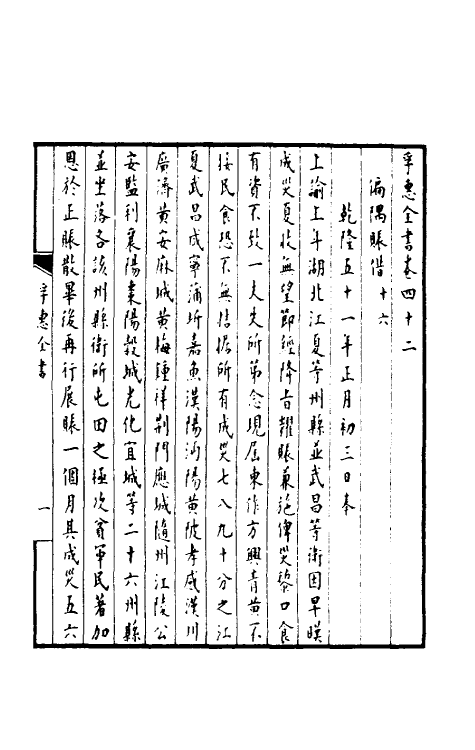 孚惠全書卷四十二
偏隅賑借十六
乾隆五十一年正月初三日奉
上諭上年湖北江夏等州縣並武昌等衛因旱暵
成災夏收無望節經降旨糶賑兼施俾災黎口食
有資不致一夫失所第念現屆東作方興青黃不
接民食恐不無拮据所有成災七八九十分之江
夏武昌咸寧蒲圻嘉魚漢陽沔陽黃陂孝感漢川
廣濟黃安麻城黃梅鍾祥荆門應城隨州江陵公
安監利襄陽棗陽穀城光化宜城等二十六州縣
並坐落各該州縣衛所屯田之極次貧軍民著加
恩於正賑散畢後再行展賑一個月其成災五六
孚惠全書
一